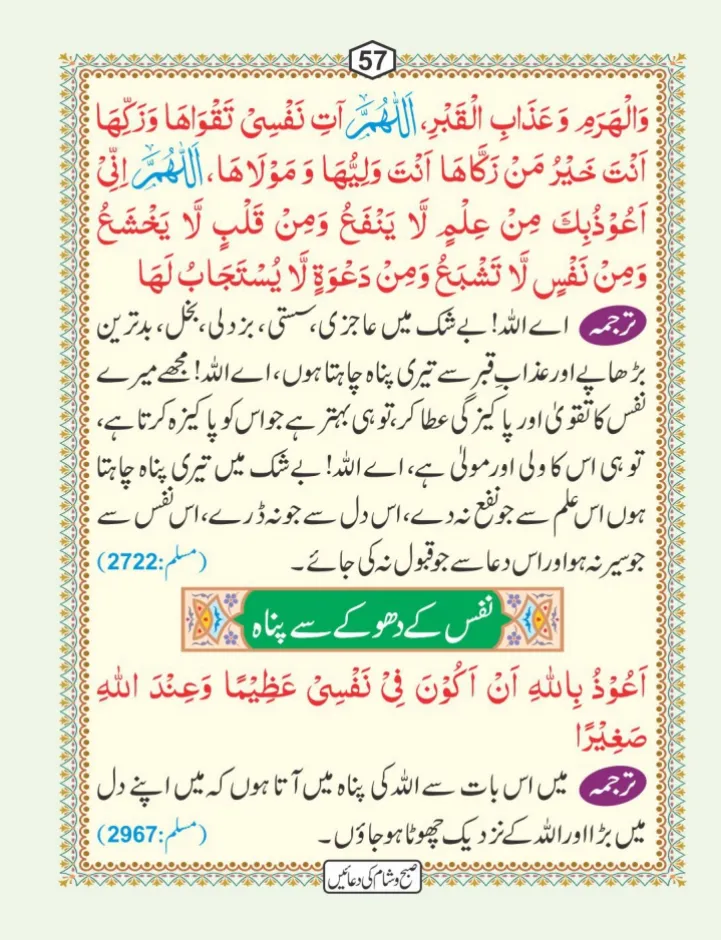 57
وَالْهَرَمِ وَعَذَابِ الْقَبْرِ، اَللّٰهُمَّ آتِ نَفْسِیْ تَقْوَاهَا وَزَکِّهَا
اَنْتَ خَیْرُ مَنْ زَکَّاهَا اَنْتَ وَلِیُّهَا وَ مَوْلَاهَا، اَللّٰهُمَّ اِنِّیْ
اَعُوْذُبِكَ مِنْ عِلْمٍ لَّا یَنْفَعُ وَمِنْ قَلْبٍ لَّا یَخْشَعُ
وَمِنْ نَفْسٍ لَّا تَشْبَعُ وَمِنْ دَعْوَةٍ لَّا یُسْتَجَابُ لَهَا
ترجمہ اے اللہ! بے شک میں عاجزی، سستی، بزدلی، بخل، بدترین
بڑھاپے اور عذابِ قبر سے تیری پناہ چاہتا ہوں، اے اللہ! مجھے میرے
نفس کا تقویٰ اور پاکیزگی عطا کر، تو ہی بہتر ہے جو اس کو پاکیزہ کرتا ہے،
تو ہی اس کا ولی اور مولیٰ ہے، اے اللہ! بے شک میں تیری پناہ چاہتا
ہوں اس علم سے جو نفع نہ دے، اس دل سے جو نہ ڈرے، اس نفس سے
جو سیر نہ ہو اور اس دعا سے جو قبول نہ کی جائے۔ (مسلم:2722)
نفس کے دھوکے سے پناہ
اَعُوْذُ بِاللّٰهِ اَنْ اَکُوْنَ فِیْ نَفْسِیْ عَظِیْمًا وَعِنْدَ اللّٰهِ
صَغِیْرًا
ترجمہ میں اس بات سے اللہ کی پناہ میں آتا ہوں کہ میں اپنے دل
میں بڑا اور اللہ کے نزدیک چھوٹا ہو جاؤں۔ (مسلم:2967)
صبح و شام کی دعائیں